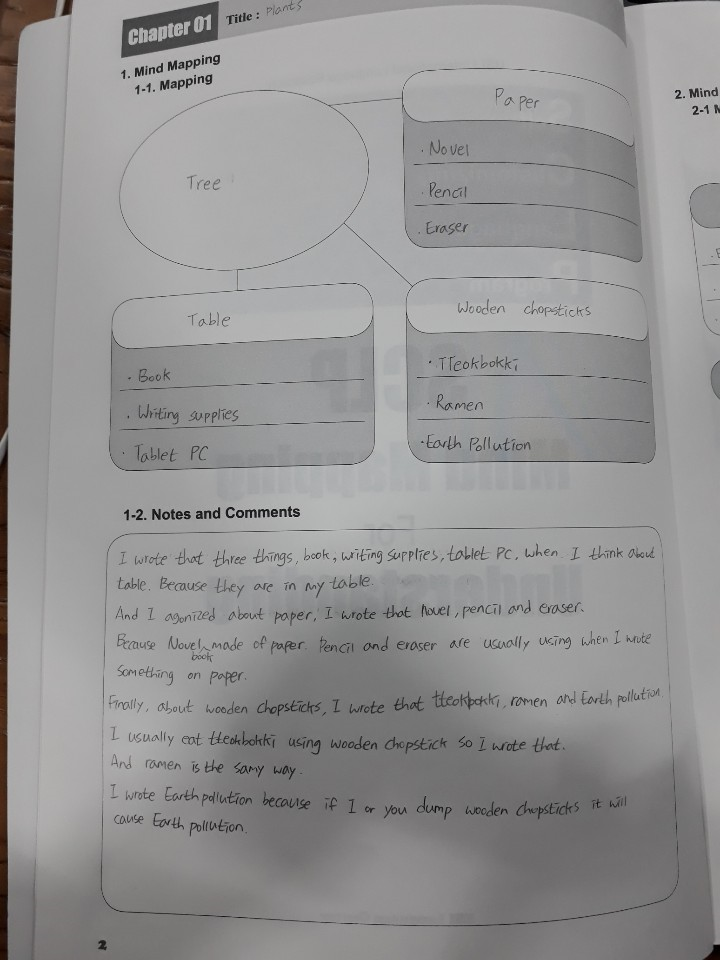 Chapter 01 Title : Plants
1. Mind Mapping
1-1. Mapping
Tree
Paper
· Novel
· Pencil
· Eraser
Table
· Book
· Writing supplies
· Tablet PC
Wooden chopsticks
· Tteokbokki
· Ramen
· Earth Pollution
1-2. Notes and Comments
I wrote that three things, book, writing supplies, tablet PC, when I think about
table. Because they are in my table.
And I agonized about paper, I wrote that novel, pencil and eraser.
Because Novel book made of paper. Pencil and eraser are usually using when I wrote
something on paper.
Finally, about wooden chopsticks, I wrote that tteokbokki, ramen and Earth pollution
I usually eat tteokbokki using wooden chopstick so I wrote that.
And ramen is the samy way.
I wrote Earth pollution because if I or you dump wooden chopsticks it will
cause Earth pollution.
2
2. Mind
2-1